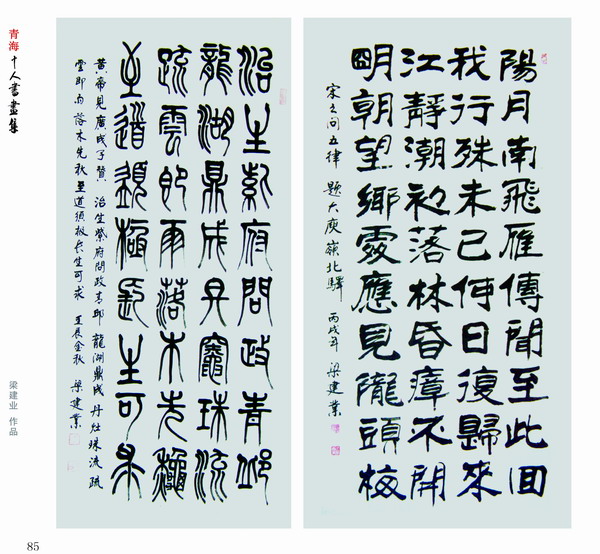 青海十人書畫集
陽月南飛雁傳聞至此回
我行殊未已何日復歸來
江靜潮初落林昏瘴不開
明朝望鄉處應見隴頭梅
宋之問五律 題大庾嶺北驛 丙戌年 梁建業
治生紫府問政青邱
龍湖鼎成丹竈珠流
疏雲即雨落木先秋
至道須極長生可求
黃帝見廣成子贊 治生紫府問政青邱 龍湖鼎成丹灶珠流疏
雲即雨落木先秋至道須極長生可求 壬辰金秋 梁建業
梁建业 作品
85